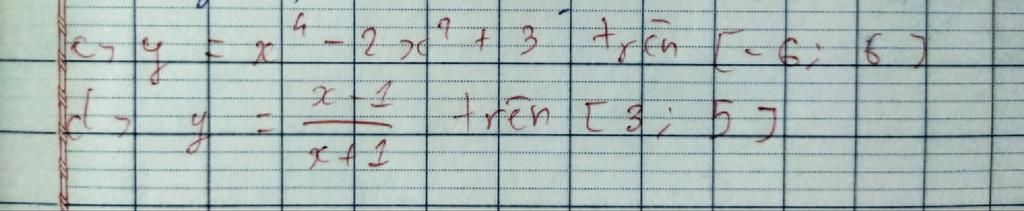 c, y = x⁴ - 2x² + 3 trên [-6; 6]
d, y = (x-1)/(x+1) trên [3; 5]